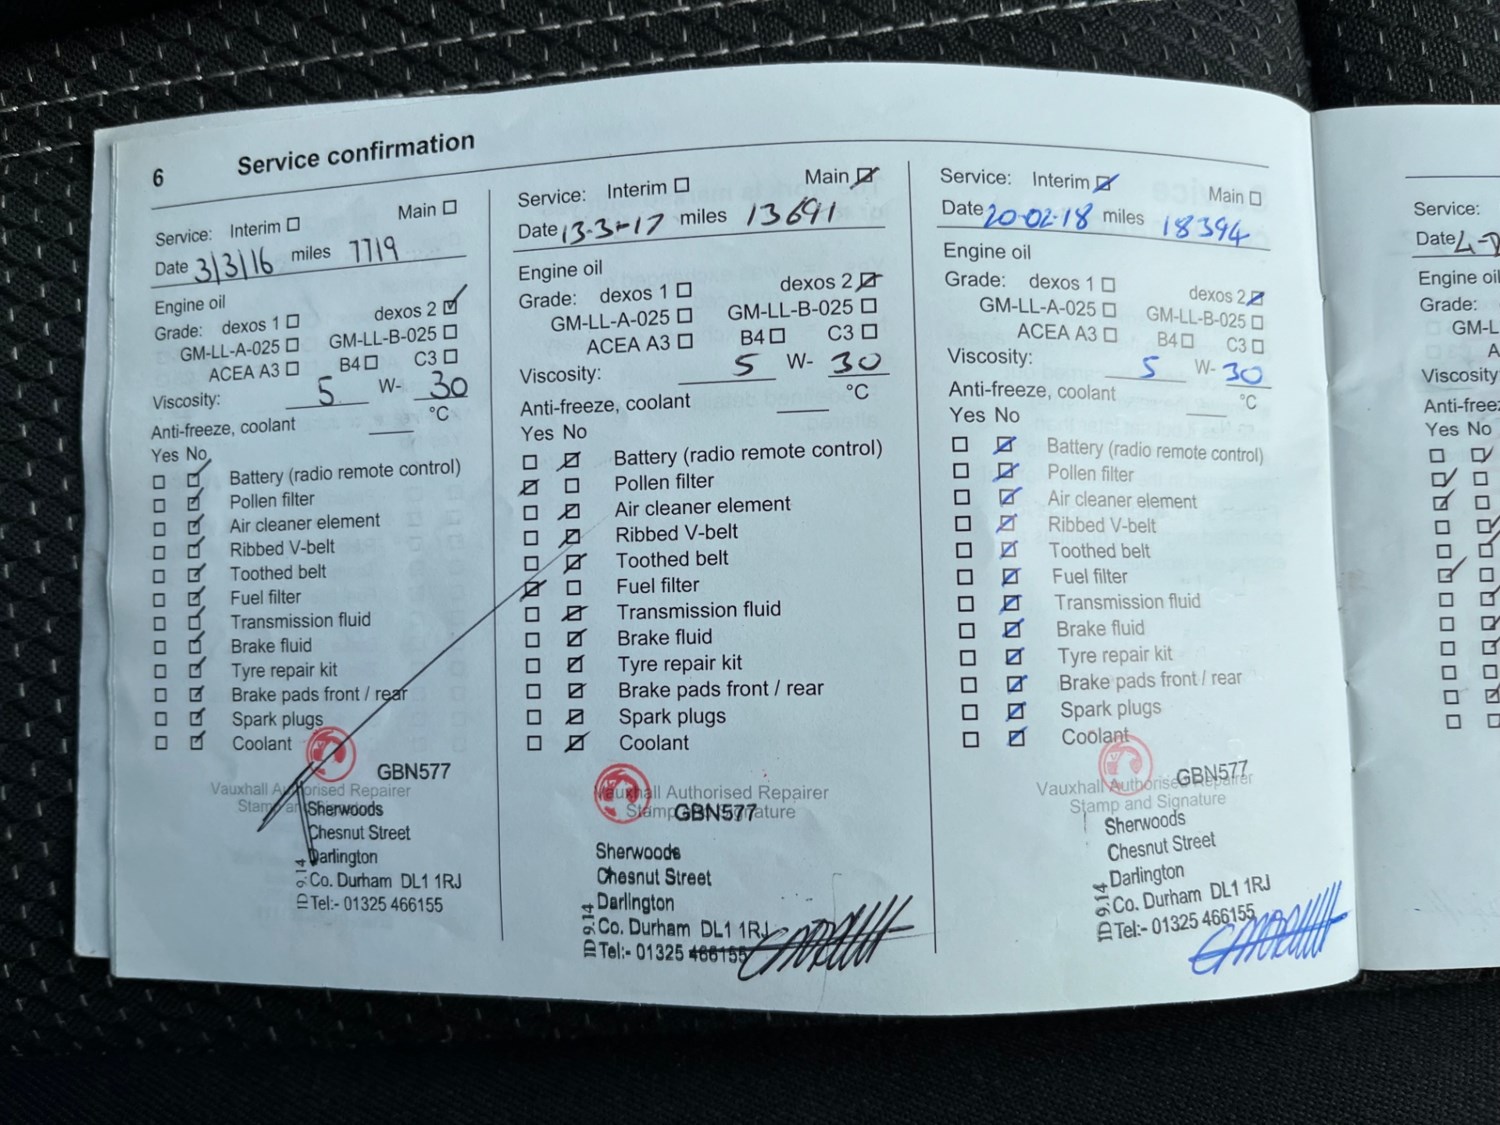 6 Service confirmation
Service: Interim ☐ Main ☐
Date 3/3/16 miles 7719
Engine oil
Grade: dexos 1 ☐ dexos 2 ☑
GM-LL-A-025 ☐ GM-LL-B-025 ☐
ACEA A3 ☐ B4 ☐ C3 ☐
Viscosity: 5 W- 30
Anti-freeze, coolant ____ °C
Yes No
☐ ☑ Battery (radio remote control)
☐ ☑ Pollen filter
☐ ☑ Air cleaner element
☐ ☑ Ribbed V-belt
☐ ☑ Toothed belt
☐ ☑ Fuel filter
☐ ☑ Transmission fluid
☐ ☑ Brake fluid
☐ ☑ Tyre repair kit
☐ ☑ Brake pads front / rear
☐ ☑ Spark plugs
☐ ☑ Coolant
GBN577
Vauxhall Authorised Repairer
Stamp and
Sherwoods
Chesnut Street
Darlington
Co. Durham DL1 1RJ
Tel:- 01325 466155
ID 9.14
Service: Interim ☐ Main ☑
Date 13-3-17 miles 13691
Engine oil
Grade: dexos 1 ☐ dexos 2 ☑
GM-LL-A-025 ☐ GM-LL-B-025 ☐
ACEA A3 ☐ B4 ☐ C3 ☐
Viscosity: 5 W- 30
Anti-freeze, coolant ____ °C
Yes No
☐ ☑ Battery (radio remote control)
☑ ☐ Pollen filter
☐ ☑ Air cleaner element
☐ ☑ Ribbed V-belt
☐ ☑ Toothed belt
☑ ☐ Fuel filter
☐ ☑ Transmission fluid
☐ ☑ Brake fluid
☐ ☑ Tyre repair kit
☐ ☑ Brake pads front / rear
☐ ☑ Spark plugs
☐ ☑ Coolant
Vauxhall Authorised Repairer
Stamp and Signature
GBN577
Sherwoods
Chesnut Street
Darlington
Co. Durham DL1 1RJ
Tel:- 01325 466155
ID 9.14
Service: Interim ☑ Main ☐
Date 20-02-18 miles 18394
Engine oil
Grade: dexos 1 ☐ dexos 2 ☑
GM-LL-A-025 ☐ GM-LL-B-025 ☐
ACEA A3 ☐ B4 ☐ C3 ☐
Viscosity: 5 W- 30
Anti-freeze, coolant ____ °C
Yes No
☐ ☑ Battery (radio remote control)
☐ ☑ Pollen filter
☐ ☑ Air cleaner element
☐ ☑ Ribbed V-belt
☐ ☑ Toothed belt
☐ ☑ Fuel filter
☐ ☑ Transmission fluid
☐ ☑ Brake fluid
☐ ☑ Tyre repair kit
☐ ☑ Brake pads front / rear
☐ ☑ Spark plugs
☐ ☑ Coolant
GBN577
Vauxhall Authorised Repairer
Stamp and Signature
Sherwoods
Chesnut Street
Darlington
Co. Durham DL1 1RJ
Tel:- 01325 466155
ID 9.14
Service:
Date
Engine oil
Grade:
GM-L
A
Viscosity
Anti-freez
Yes No